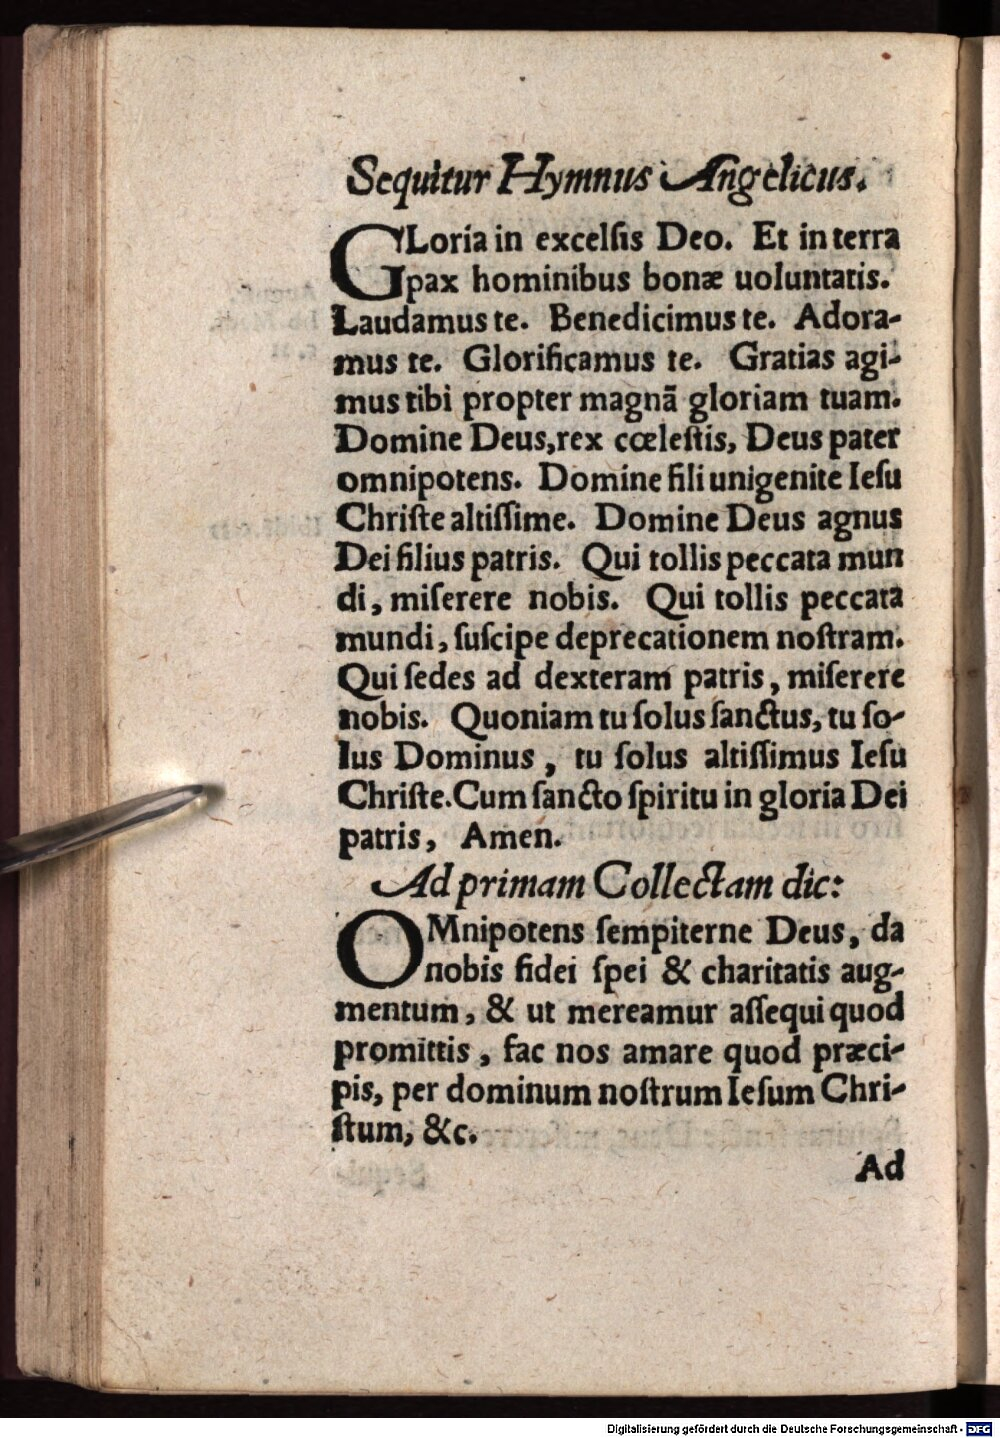 Sequitur Hymnus Angelicus.
GLoria in excelſis Deo. Et in terra
pax hominibus bonæ uoluntatis.
Laudamus te. Benedicimus te. Adora-
mus te. Glorificamus te. Gratias agi-
mus tibi propter magnã gloriam tuam.
Domine Deus, rex cœleſtis, Deus pater
omnipotens. Domine fili unigenite Ieſu
Chriſte altiſſime. Domine Deus agnus
Dei filius patris. Qui tollis peccata mun
di, miſerere nobis. Qui tollis peccata
mundi, ſuſcipe deprecationem noſtram.
Qui ſedes ad dexteram patris, miſerere
nobis. Quoniam tu ſolus ſanctus, tu ſo-
lus Dominus, tu ſolus altiſſimus Ieſu
Chriſte. Cum ſancto ſpiritu in gloria Dei
patris, Amen.
Ad primam Collectam dic:
OMnipotens ſempiterne Deus, da
nobis fidei ſpei & charitatis aug-
mentum, & ut mereamur aſſequi quod
promittis, fac nos amare quod præci-
pis, per dominum noſtrum Ieſum Chri-
ſtum, &c.
Ad
Digitalisierung gefördert durch die Deutsche Forschungsgemeinschaft - DFG